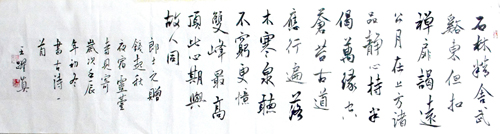 石林精舍武
谿東但扣
禅扉謁遠
公月在上方諸
品静心持半
偈萬缘空
蒼苔古道
應行遍落
木寒泉聴
不窮更憶
雙峰最高
頂此心期與
故人同
郎士元贈
錢起秋
夜宿靈臺
寺見寄
歲次壬辰
年初冬
書古诗一
首